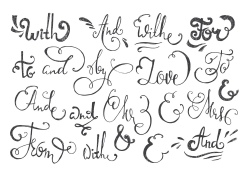 with And Withe For
to and by Love To
Ande and Mr & Mrs
From with & & And